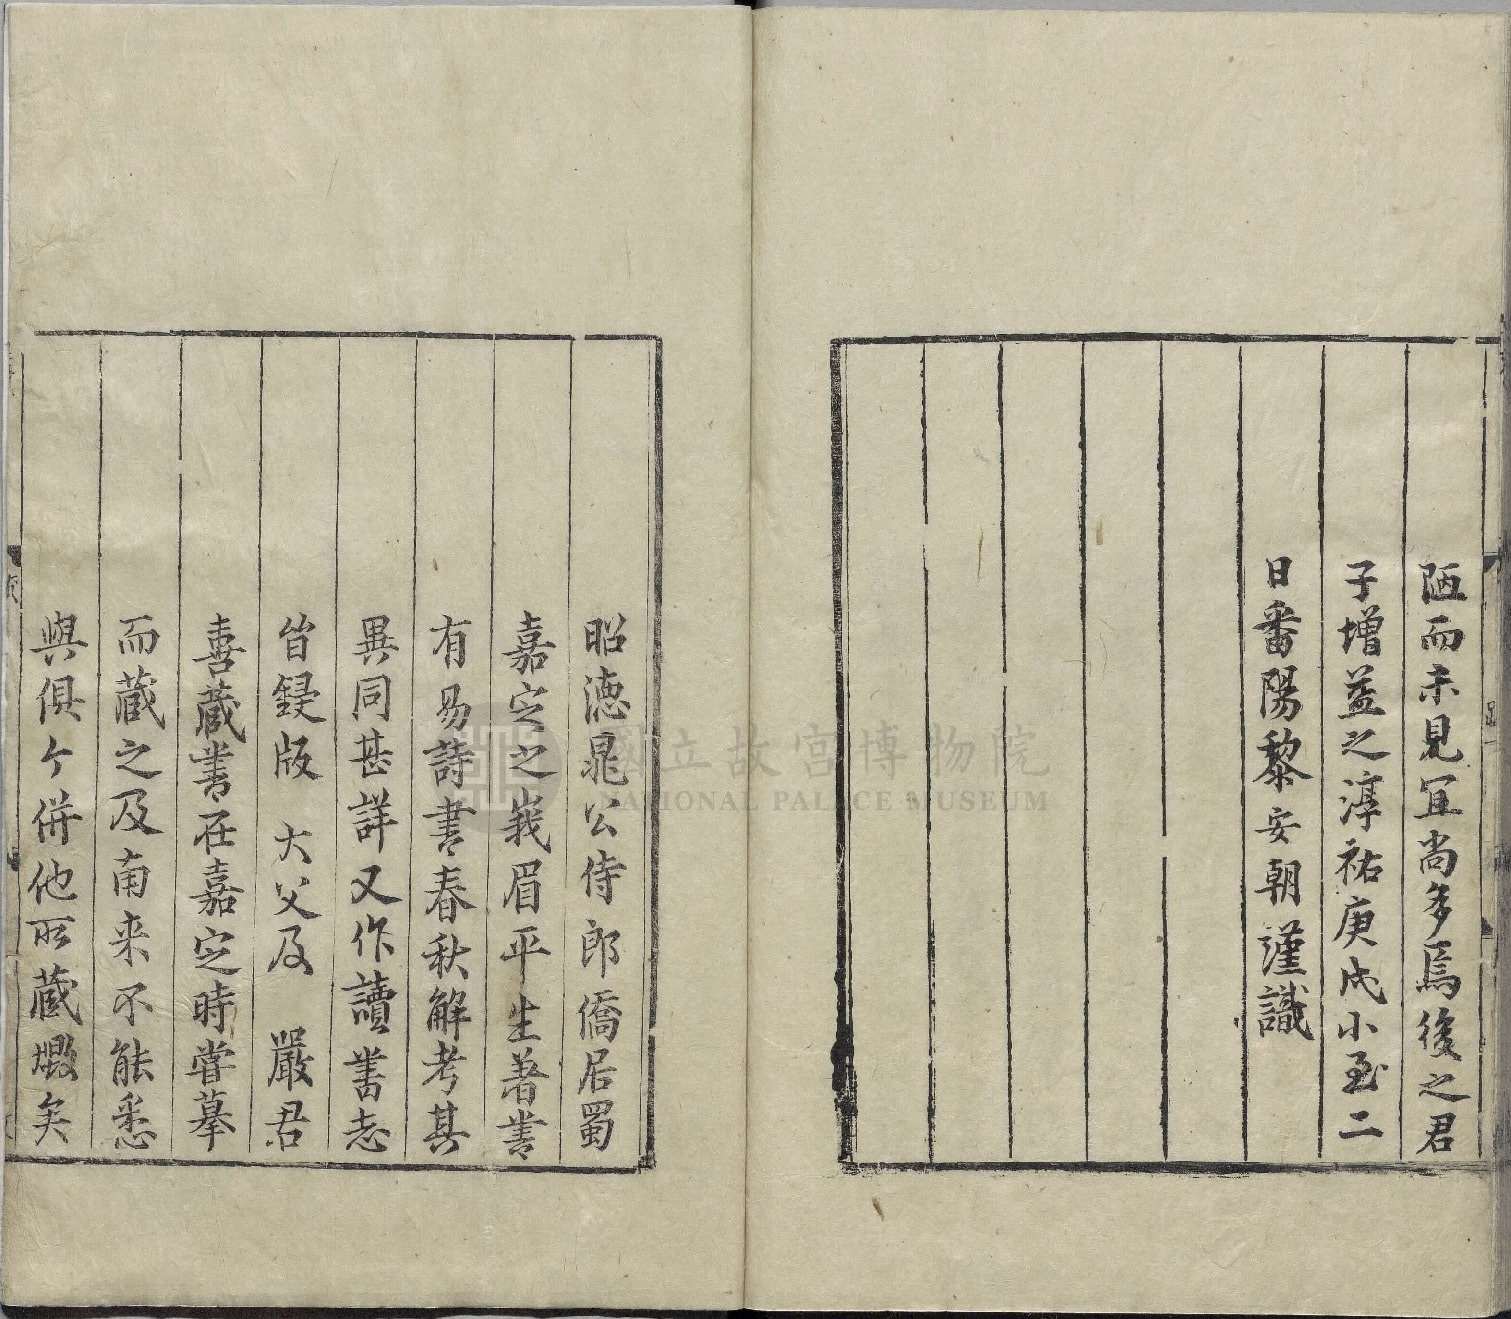 陋而未見冝尚多焉後之君
子增益之淳祐庚戌小至二
日番陽黎安朝謹識
昭德晁公侍郎僑居蜀
嘉定之峩眉平生著書
有易詩書春秋解考其
異同甚詳又作讀書志
皆鋟版 大父及 嚴君
喜藏書在嘉定時嘗摹
而藏之及南来不能悉
與俱今併他所藏燬矣
國立故宮博物院
NATIONAL PALACE MUSEUM